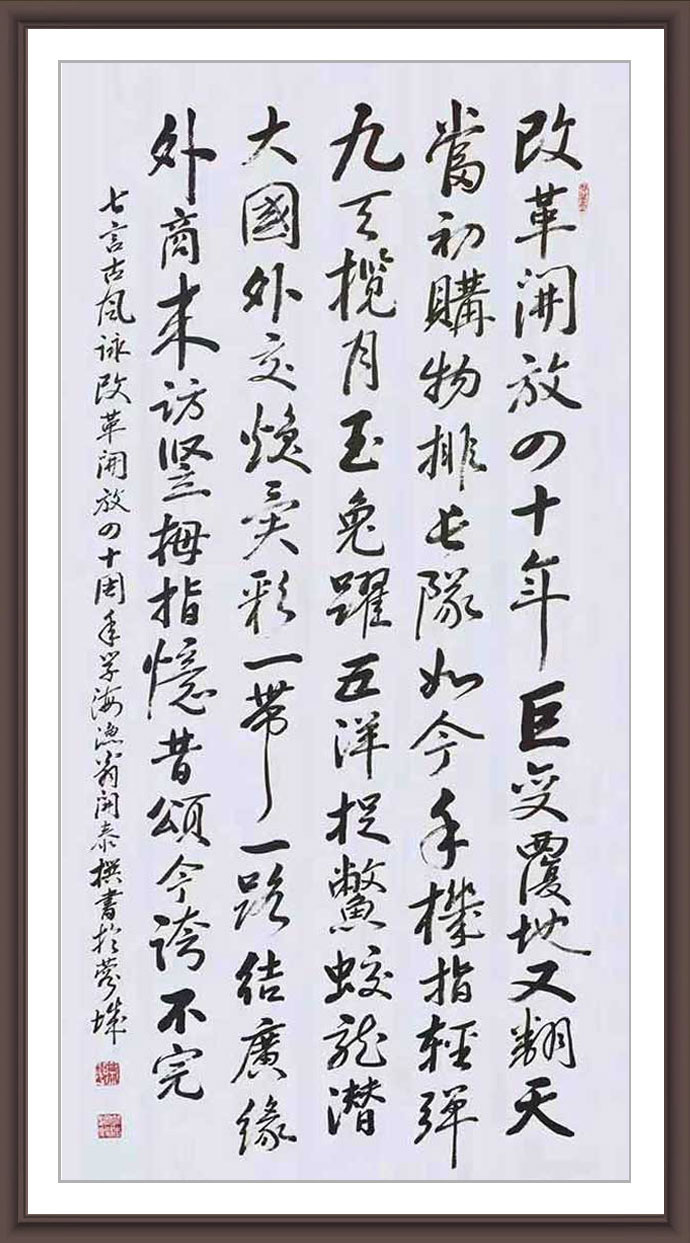 改革開放四十年巨变覆地又翻天
當初購物排長隊如今手機指輕彈
九天揽月玉兔躍五洋捉鱉蛟龙潜
大國外交焕異彩一帶一路结廣缘
外商来访竖拇指憶昔頌今誇不完
七言古风咏改革開放四十周年学海渔翁開泰撰書於蓉城